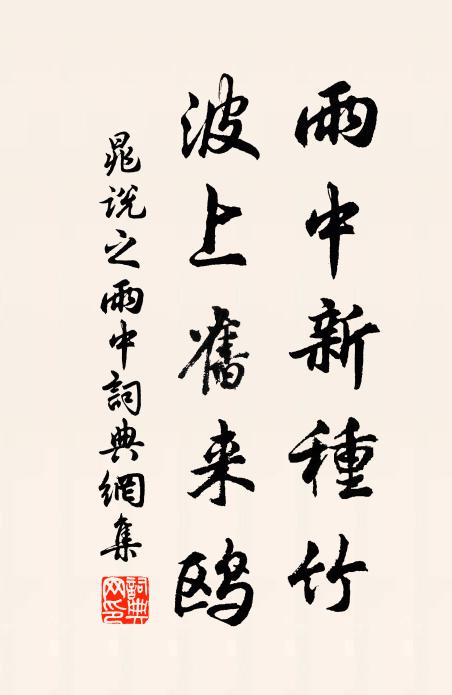 雨中新種竹
波上舊来鸥
晁说之雨中詞典網集
詞典網印